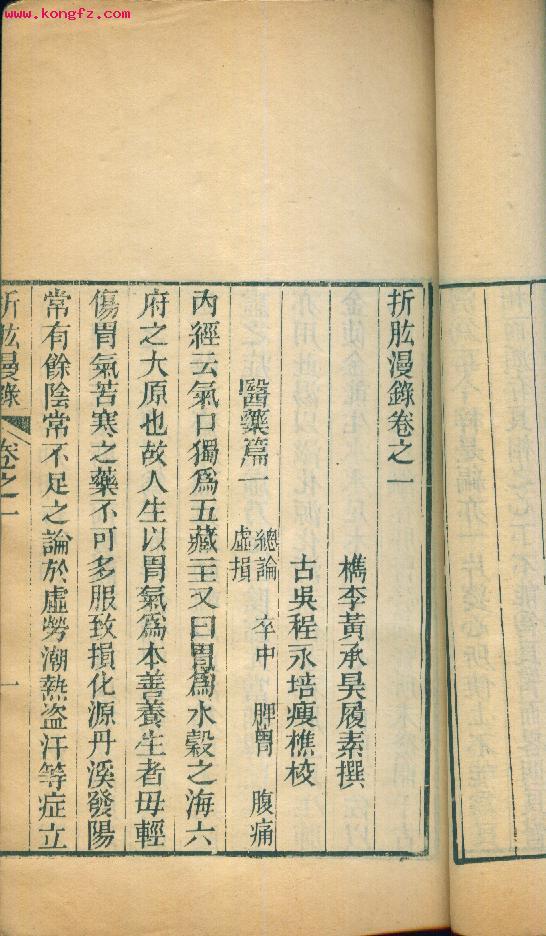 www.kongfz.com
折肱漫錄卷之一
檇李黃承昊履素撰
古吳程永培瘦樵校
醫藥篇一 總論 虛損 卒中 脾胃 腹痛
內經云氣口獨爲五藏主又曰胃爲水穀之海六
府之大原也故人生以胃氣爲本善養生者毋輕
傷胃氣苦寒之藥不可多服致損化源丹溪發陽
常有餘陰常不足之論於虛勞潮熱盜汗等症立
折肱漫錄 卷之一 一